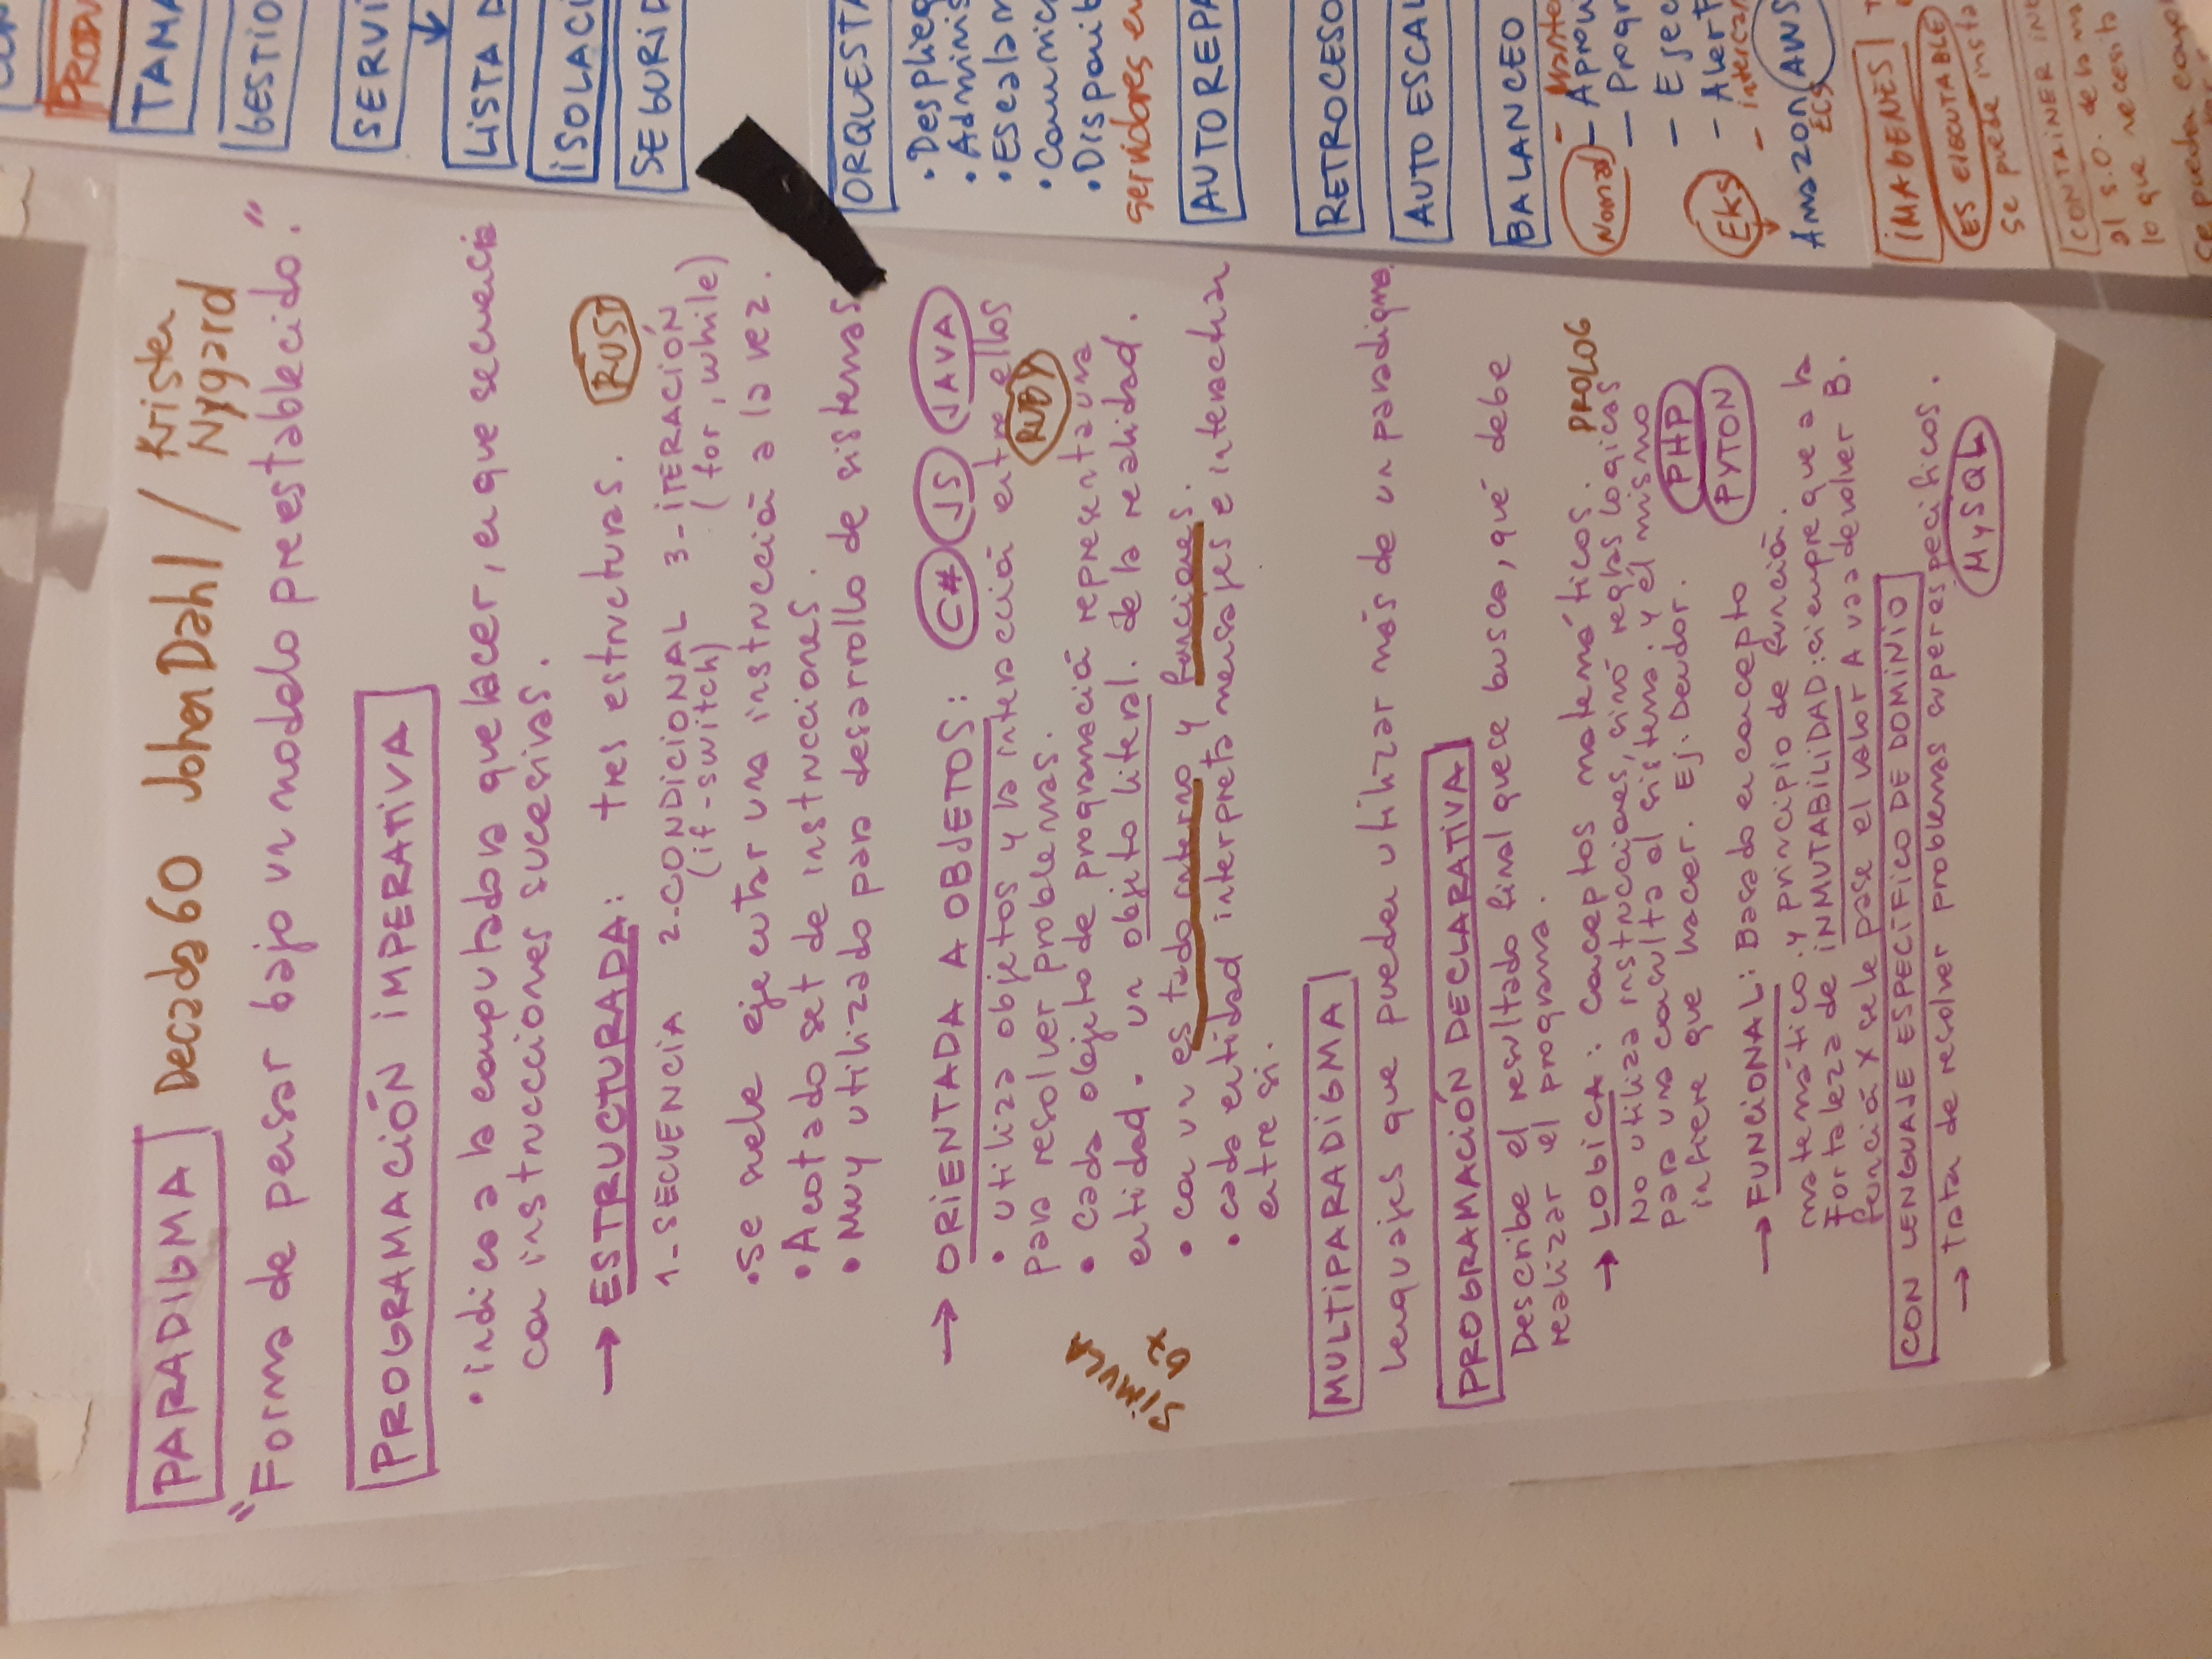 PARADIGMA Decada 60 Johen Dahl / Kristen
Nygard
"Forma de pensar bajo un modelo preestablecido."
PROGRAMACIÓN IMPERATIVA
• indica a la computadora que hacer, en que secuencia
con instruccciones sucesivas.
→ ESTRUCTURADA: tres estructuras. RUST
1-SECUENCIA 2-CONDICIONAL 3-ITERACIÓN
(if-switch) (for, while)
• se suele ejecutar una instrucción a la vez.
• Acotado set de instrucciones.
• Muy utilizado para desarrollo de sistemas
→ ORIENTADA A OBJETOS: C# JS JAVA
• utiliza objetos y la interacción entre ellos
para resolver problemas. RUBY
• Cada objeto de programación representa una
entidad. un objeto literal. de la realidad.
SIMULA
67
• con un estado interno y funciones.
• cada entidad interpreta mensajes e interactúan
entre si.
MULTIPARADIGMA
Lenguajes que pueden utilizar más de un paradigma.
PROGRAMACIÓN DECLARATIVA
Describe el resultado final que se busca, qué debe
realizar el programa.
→ LOGICA: Conceptos matemáticos. PROLOG
No utiliza instrucciones, sinó reglas logicas
para una consulta al sistema. y él mismo
infiere que hacer. Ej: Deudor. PHP
PYTON
→ FUNCIONAL: Basado en concepto
matemático. y principio de función.
Fortaleza de INMUTABILIDAD: siempre que a la
función X se le pase el valor A va a devolver B.
CON LENGUAJE ESPECÍFICO DE DOMINIO
→ trata de resolver problemas super especificos.
MySQL
PRODU
TAMA
GESTIO
SERVI
↓
LISTA D
ISOLACI
SEGURID
ORQUESTA
• Desplieg
• Adminis
• Escalam
• Comunic
• Disponib
servidores en
AUTOREPA
RETROCESO
AUTO ESCAL
BALANCEO
- Mante
Nomad - Aprov
- Progr
- Ejec
EKS - Alert
- intercam
Amazon AWS
ECS
IMAGENES
ES EJECUTABLE
Se puede insta
CONTAINER IN
al S.O. de la ma
lo que necesita
Se pueden